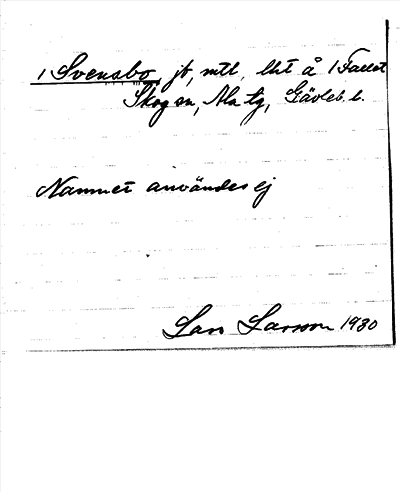 1 Svensbo, jb, mtl, lht å 1 Fallet
Skog sn, Ala tg, Gävleb. l.
Namnet användes ej
Lars Larsson 1930